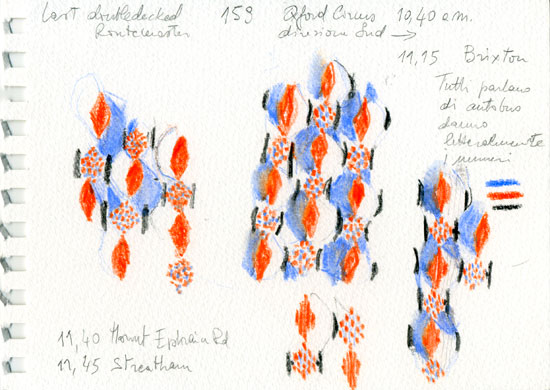 Last doubledecked
Routemaster
159
Oxford Circus 10,40 a.m.
direzione Sud →
11,15 Brixton
Tutti parlano
di autobus
danno
letteralmente
i numeri
11,40 Mount Ephraim Rd
11,45 Streatham